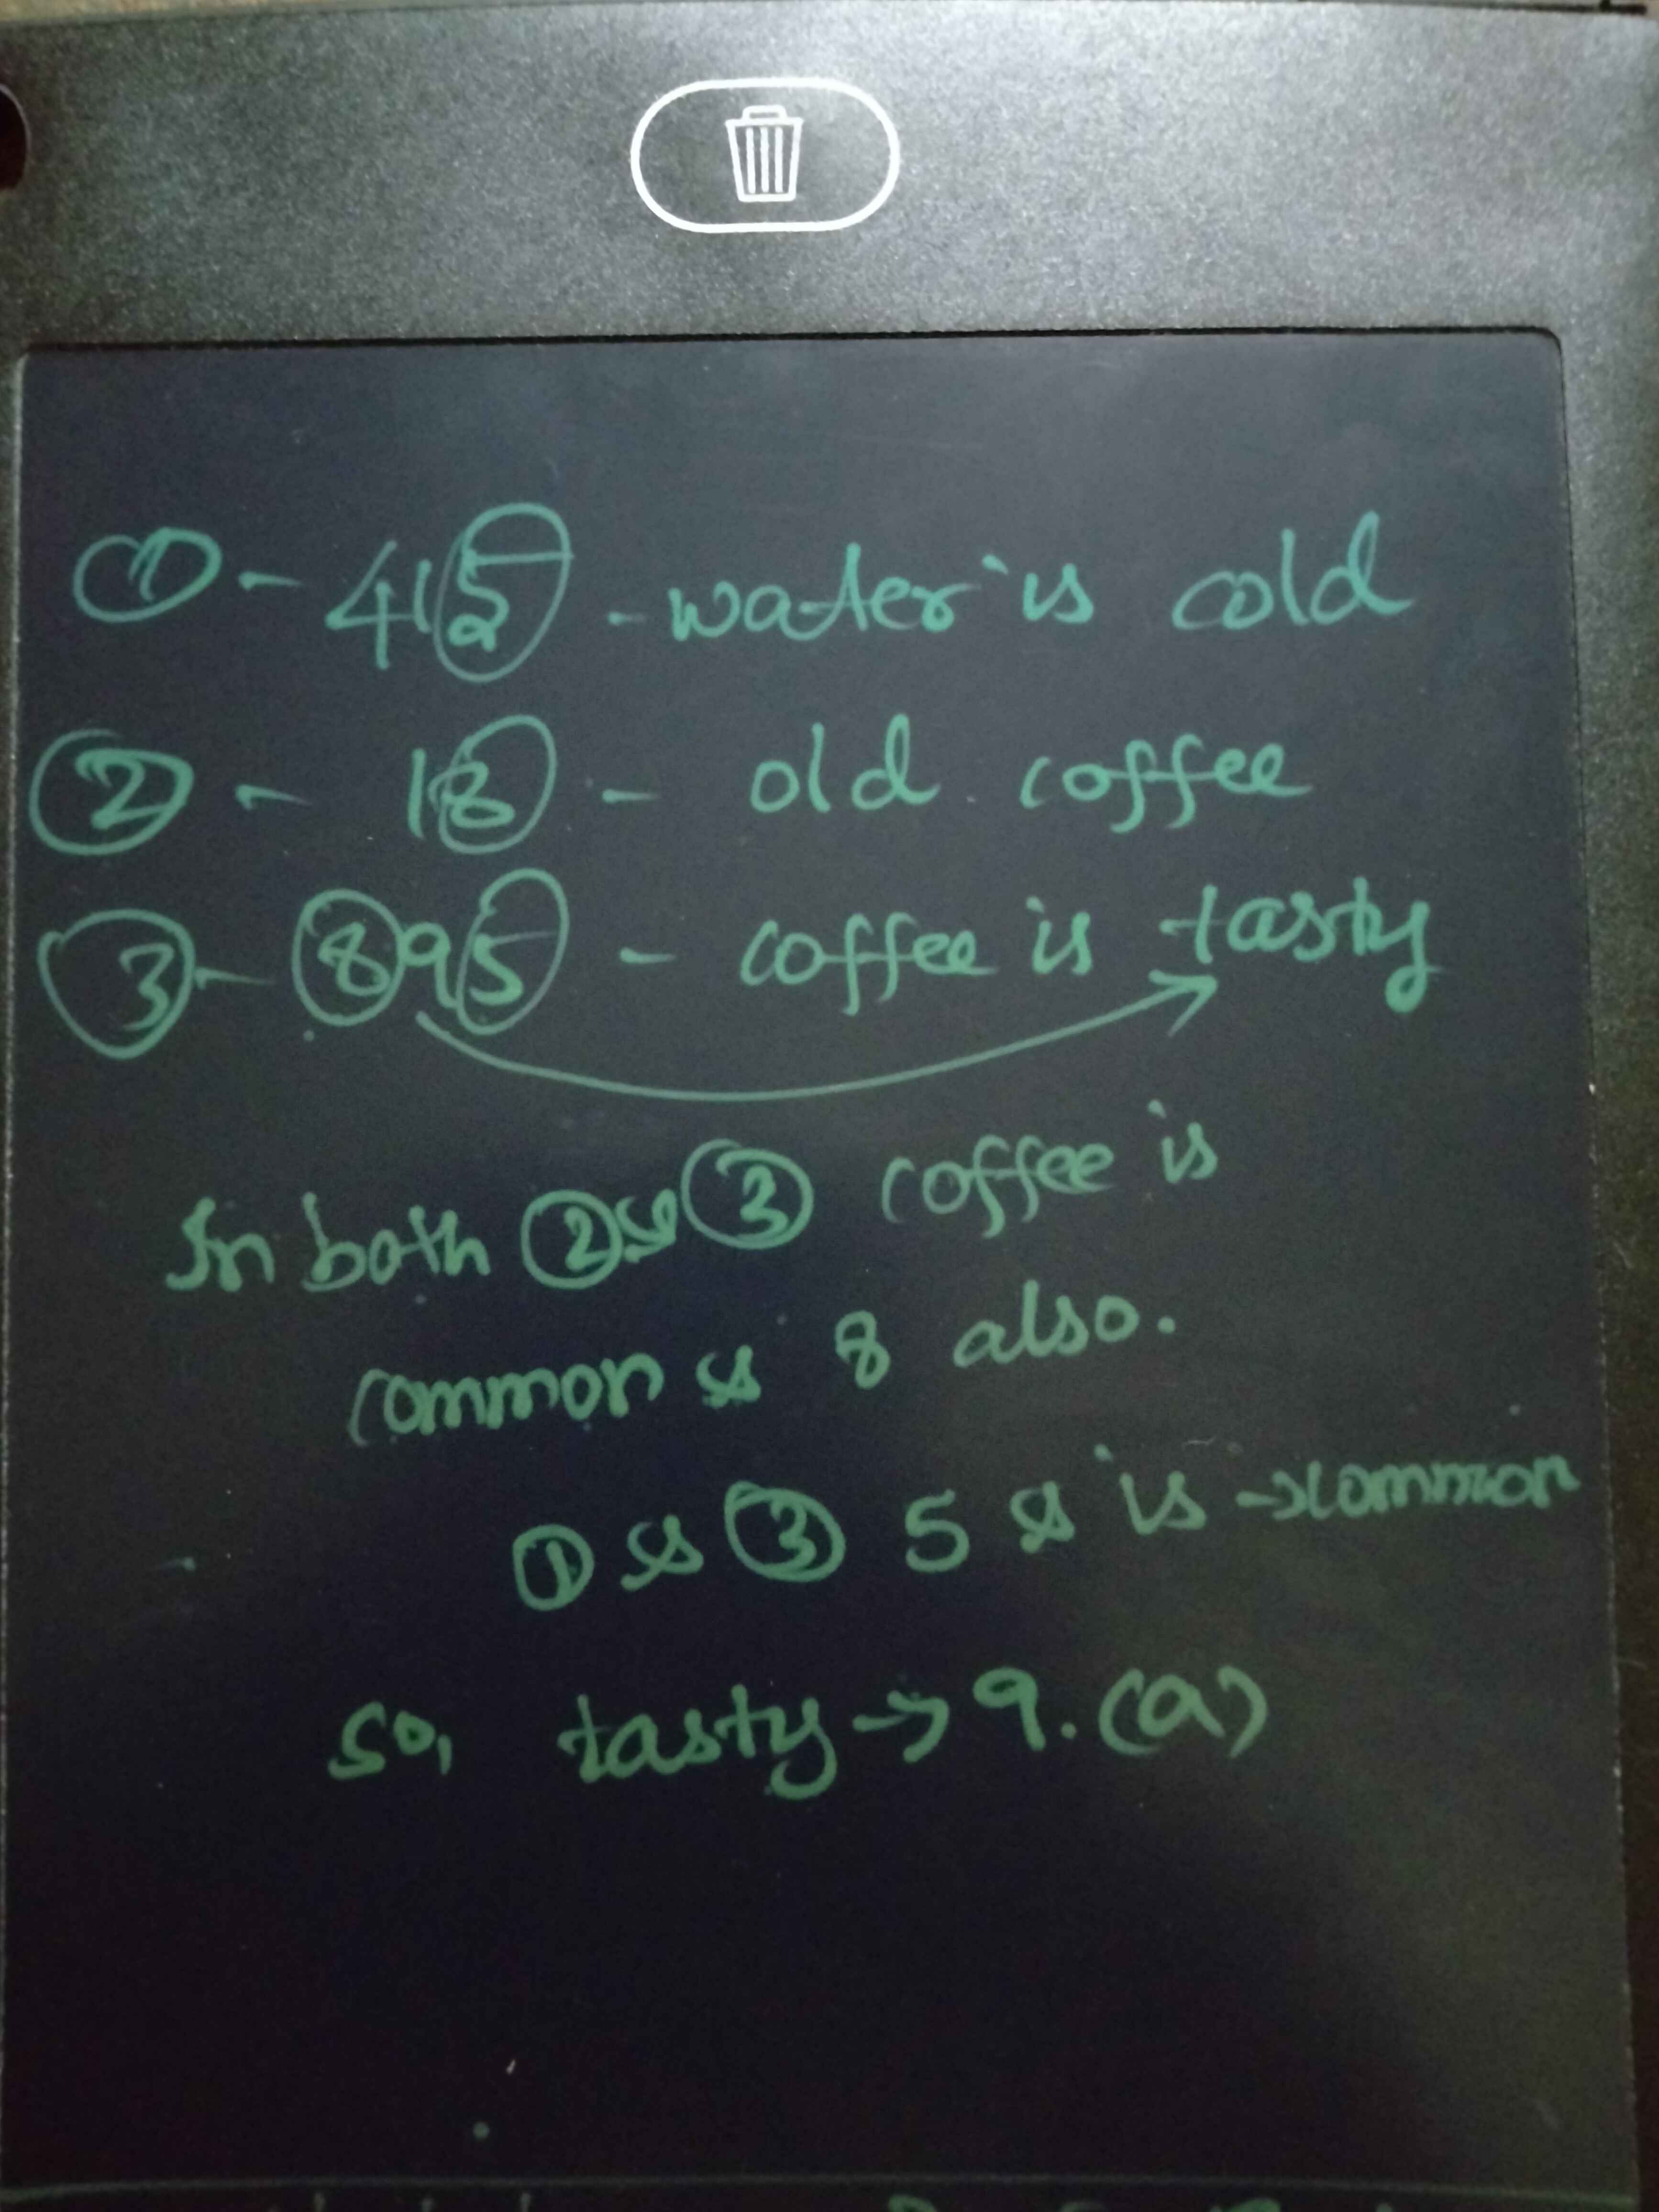 ① - 415 - water is cold
② - 18 - old coffee
③ - 895 - coffee is tasty
In both ② & ③ coffee is
common & 8 also.
① & ③ 5 & is → common
so, tasty → 9. (a)